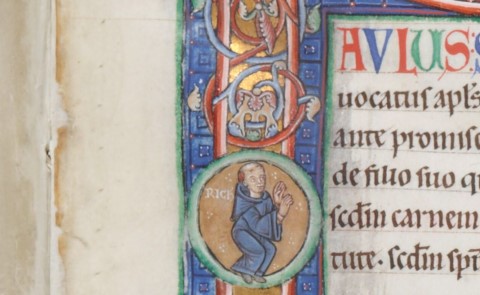 AVLUS: S
uocatus apl's
ante promisc
de filio suo q
scdm carnem
tute. scdm sp
RICH